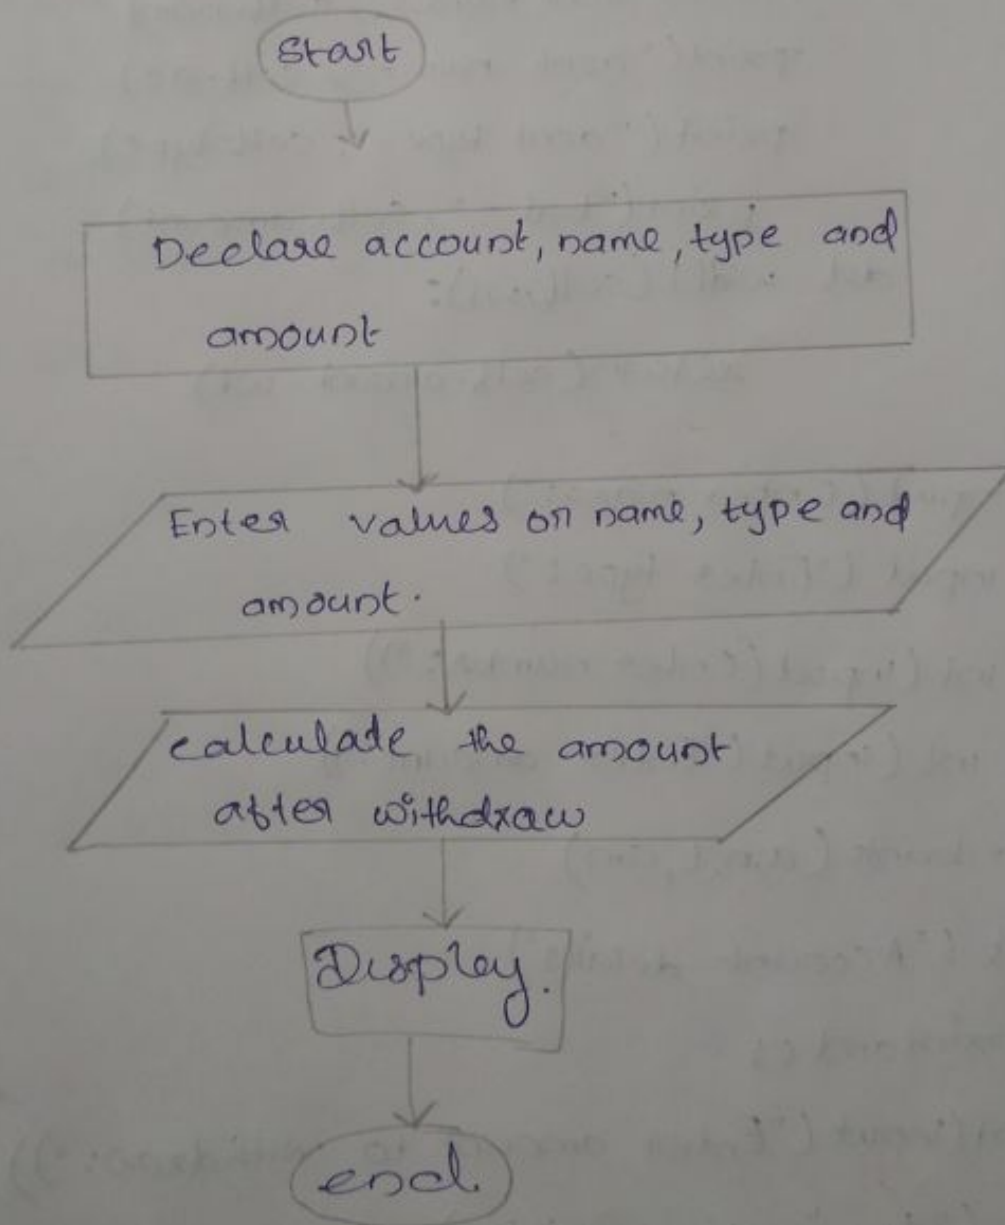 Start
Declare account, name, type and
amount
Enter values on name, type and
amount.
calculate the amount
after withdraw
Display.
end.